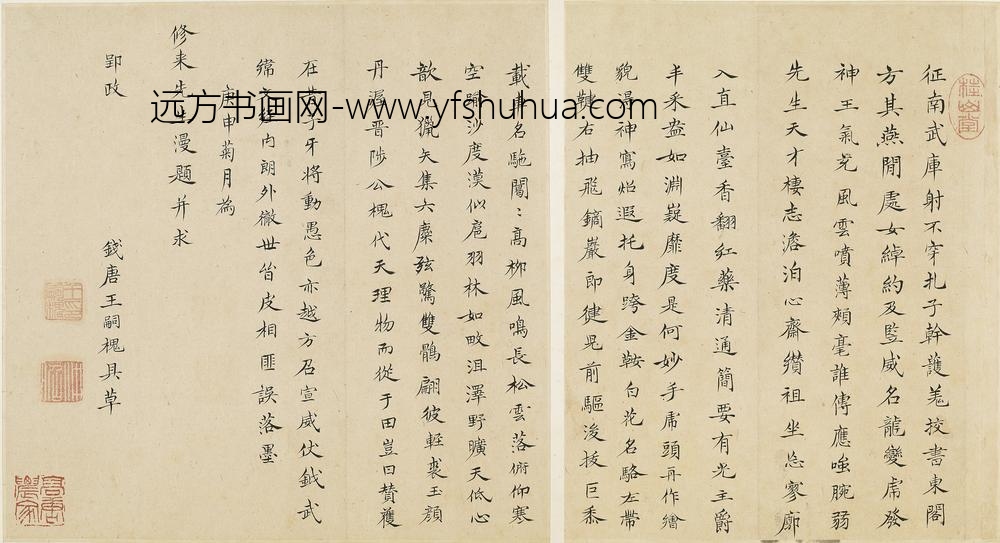 征南武庫射不穿扎子幹護羌挍書東閣
方其燕閒處女綽約及監威名龍變虎發
神王氣尧風雲噴薄頰毫誰傳應嗤腕弱
先生天才棲志澹泊心齋纘祖坐忘寥廓
入直仙臺香翻红藥清通簡要有光主爵
丰采盎如淵嶷靡度是何妙手虎頭再作繪
貌得神寫炤遐托身跨金鞍白花名駱左帶
雙鞬右抽飛鏑嚴即揵晃前驅後拔巨黍
載名駞闐:高栁風鳴長松雲落俯仰寒
空蹄沙度漠似扈羽林如畋沮澤野曠天低心
歊見獵矢集六麋弦驚雙鶻翩彼輕裘玉顔
丹渥晋陟公槐代天理物而從于田豈曰贊穫
在子牙將動愚色亦越方召宣威伏鉞武
内朗外徹世皆皮相匪誤落墨
庚申菊月為
修来先漫題并求
郢政
錢唐王嗣槐具草
远方书画网-www.yfshuhua.com